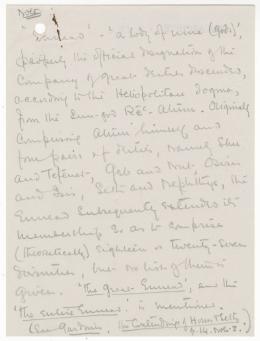 Note
'Ennead' - 'a body of nine (gods)',
properly the official designation of the
Company of great deities descended,
according to the Heliopolitan dogma,
from the Sun-god Rēʿ-Atum. Originally
comprising Atum himself and
four pairs of deities, namely Shu
and Tefēnet, Geb and Nut, Osiris
and Isis, Seth and Nephthys, the
Ennead subsequently extended its
membership so as to comprise
(theoretically) eighteen or twenty-seven
divinities, but no list of them is
given. 'The great Ennead', and the
'the entire Ennead' is mentioned.
(See Gardiner, The Contendings of Horus & Seth
p. 14. note 2.)